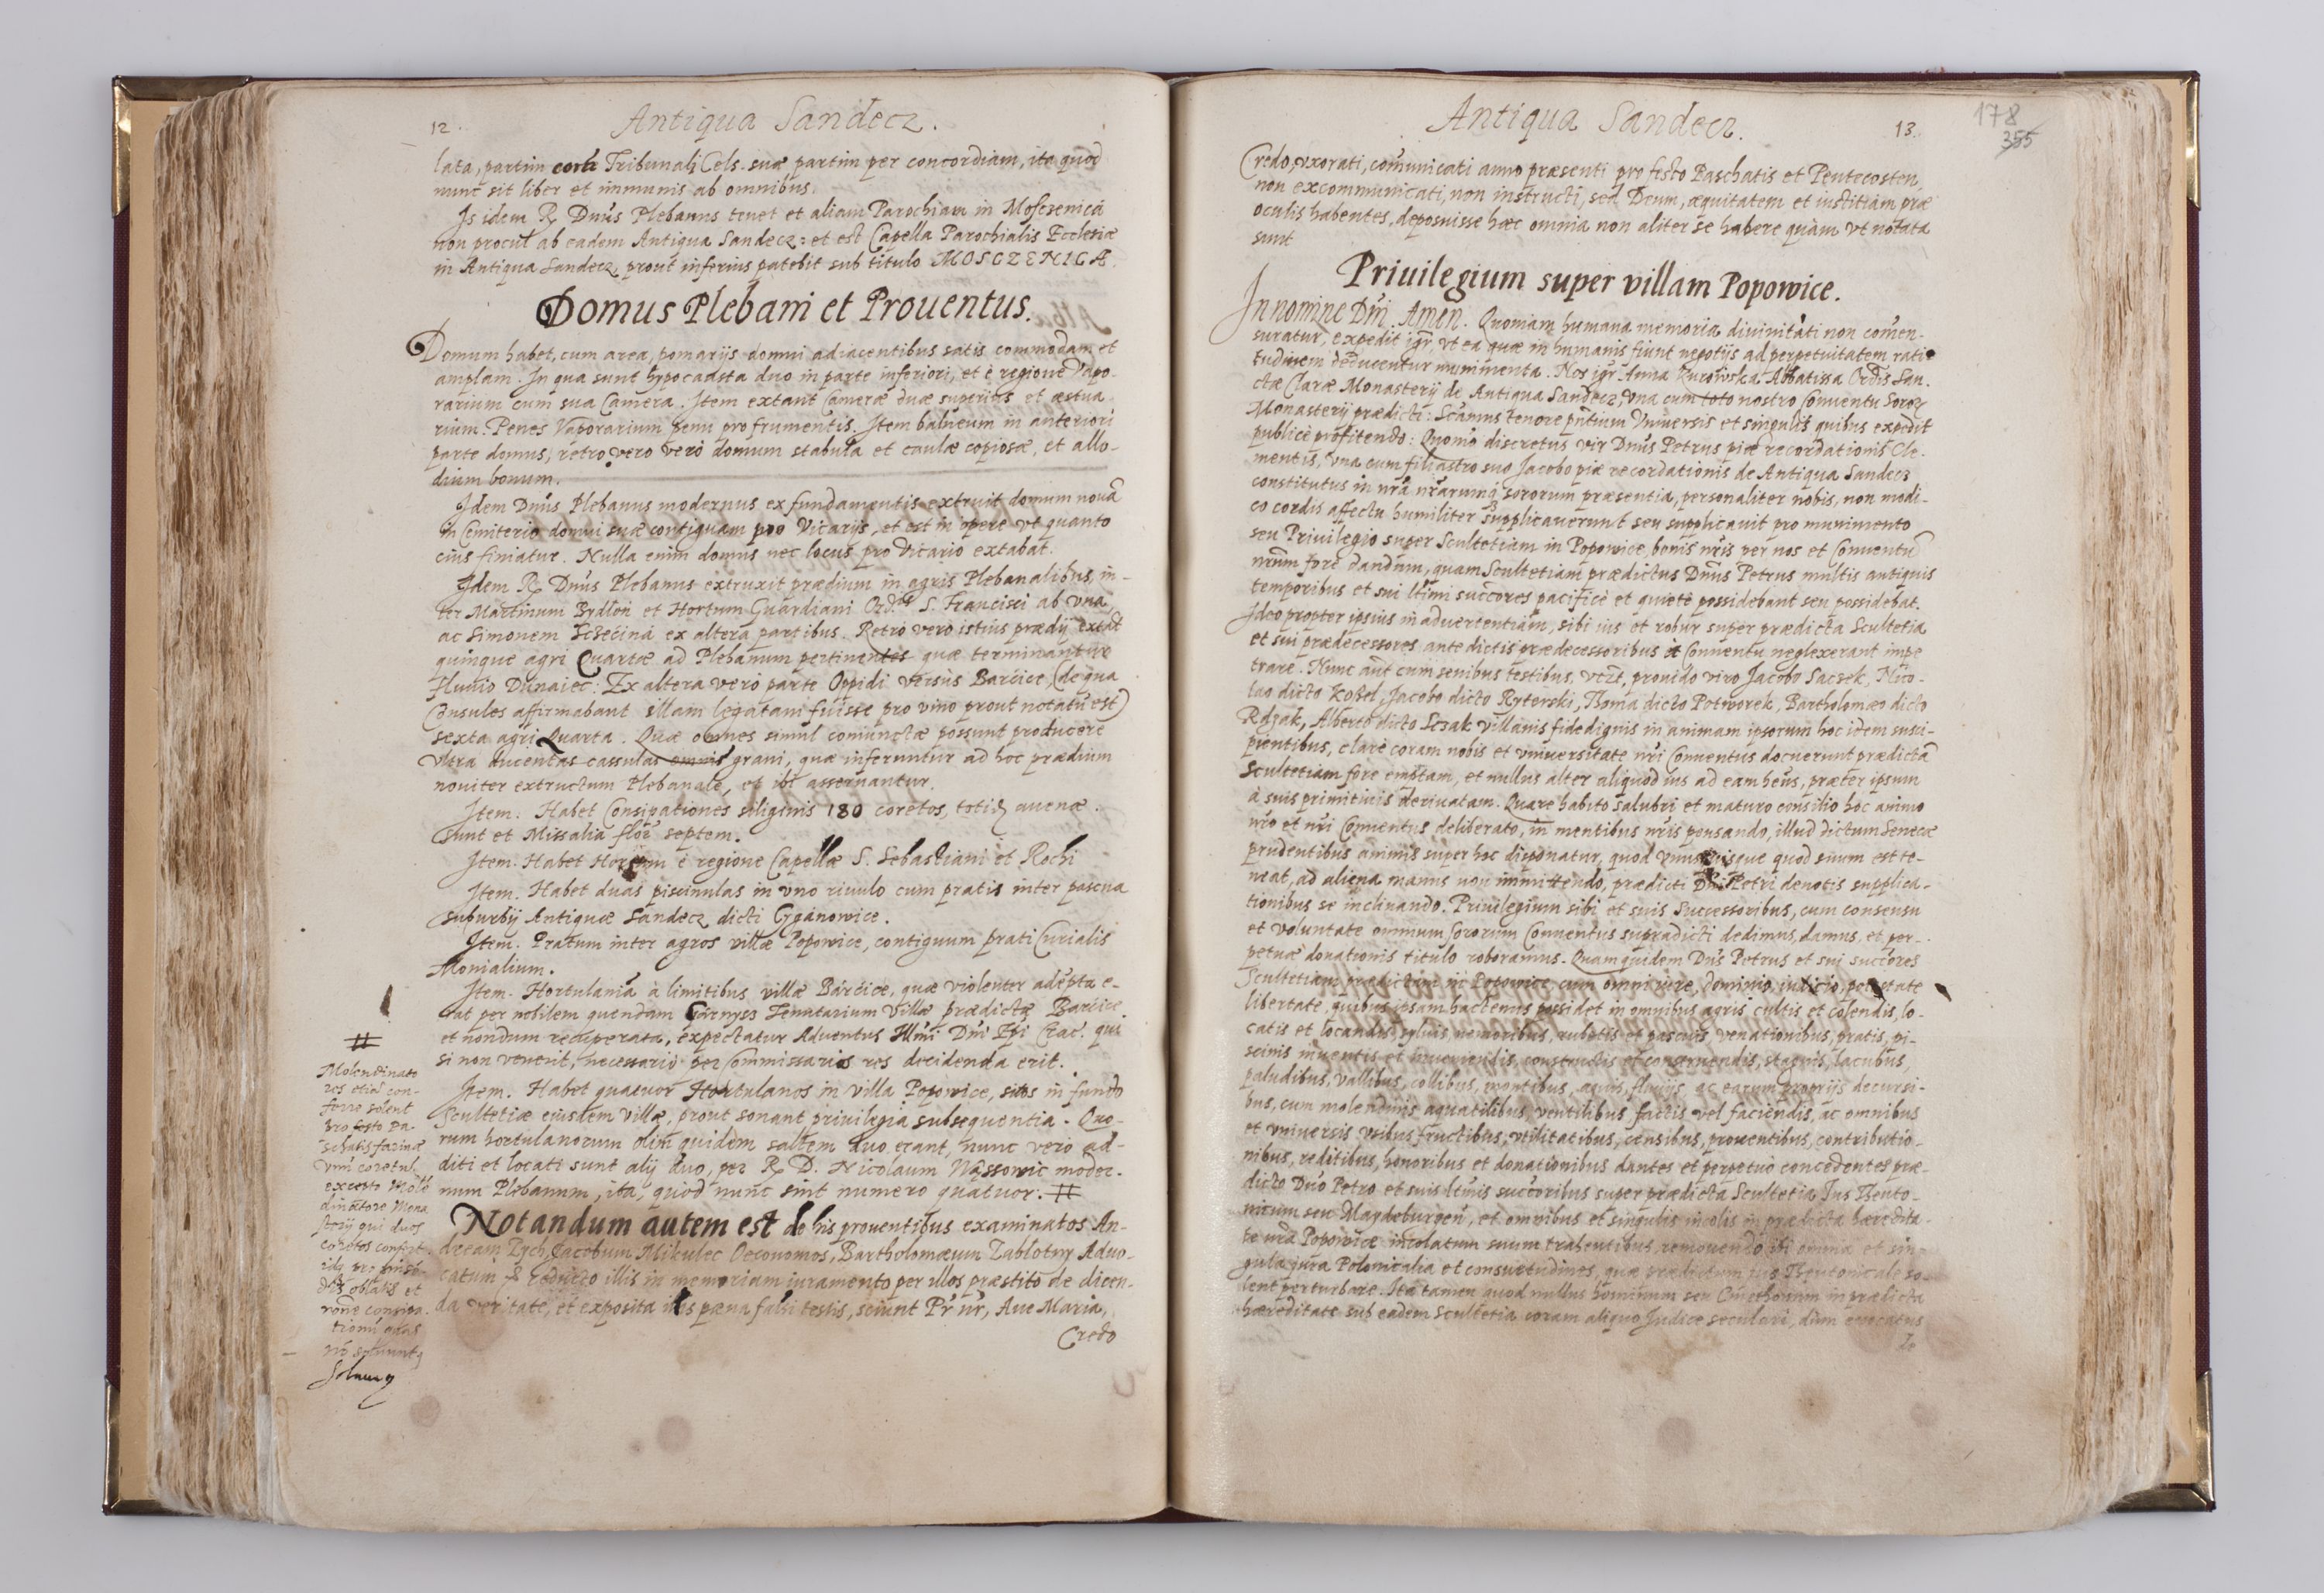 12.
Antiqua Sandecz.
lata, partim corā Tribunali Cels. suæ partim per concordiam, ita quod
nunc sit liber et immunis ab omnibus.
Is idem R. Dnūs Plebanus tenet et aliam Parochiam in Mosczenicā
non procul ab eadem Antiqua Sandecz: et est Capella Parochialis Ecclesiæ
in Antiqua Sandecz, prout inferius patebit sub titulo MOSCZENICÆ.
Domus Plebani et Prouentus.
Domum habet, cum area, pomarijs domui adiacentibus satis commodam et
amplam. In qua sunt hypocausta duo in parte inferiori, et è regione Vapo-
rarium cum sua Camera. Item extant Cameræ duæ superius et æstua
rium. Penes Vaporarium penu pro frumentis. Item balneum in anteriori
parte domus, retro vero vero domum stabula et caulæ copiosæ, et allo-
dium bonum.
Idem Dnūs Plebanus modernus ex fundamentis extruit domum nouā
in Cemiterio domui suæ contiguam pro Vicarijs, et est in opere vt quanto
cius finiatur. Nulla enim domus nec locus pro Vicario extabat.
Idem R. Dnūs Plebanus extruxit prædium in agris Plebanalibus, in-
ter Martinum Brdłon et Hortum Guardiani Ord. S. Francisci ab vna,
ac Simonem ex altera partibus. Retro vero istius prædij extāt
quinque agri Quartæ ad Plebanum pertinentes quæ terminantur
fluuio Dunaiec: Ex altera vero parte Oppidi versus Barcice, (de qua
Consules affirmabant illam legatam fuisse pro vino prout notatū est)
sexta agri Quarta. Quæ omnes simul coniunctæ possunt producere
vltra ducentas cassulas omnis grani, quæ inferuntur ad hoc prædium
nouiter extructum Plebanale, et ibi asseruantur.
Item. Habet Consipationes siliginis 180 coretos, totiđ auenæ.
Sunt et Missalia flor septem.
Item. Habet Hortum è regione Capellæ S. Sebastiani et Rochi
Item. Habet duas piscinulas in vno riuulo cum pratis inter pascua
suburbij Antiquæ Sandecz dicti Cyganowice.
Item. Pratum inter agros villæ Popowice, contiguum prati Curialis
Monialium.
Item. Hortulania à limitibus villæ Barcice, quæ violenter adepta e-
rat per nobilem quendam Garnysz Tenutarium Villæ prædictæ Barcice.
et nondum recuperata, expectatur Aduentus Illmi Dni Epi Crac. qui
si non venerit, necessario per Commissarios res decidenda erit.
Item. Habet quatuor Hortulanos in villa Popowice, sitos in fundo
Scultetiæ eiusdem Villæ, prout sonant priuilegia subsequentia. Quo-
rum hortulanorum olim quidem saltem duo erant, nunc vero ad-
diti et locati sunt alij duo, per R. D. Nicolaum Wąssowic moder-
num Plebanum, ita, quod nunc sint numero quatuor. #
#
Molendinato
res etiā con-
ferre solent
pro festo Pa-
schatis farinæ
vnū coretul
excepto Mole
dinatore Mona
sterij qui duos
coretos confert
Notandum autem est de his prouentibus examinatos An-
dream Zych, Jacobum Mikulec Oeconomos, Bartholomæum Zablotny Aduo-
catum & reducto illis in memoriam iuramento per illos præstito de dicen-
da veritate, et exposita illis pæna falsi testis, sciunt Pr nr, Aue Maria,
Credo
Antiqua Sandecz.
13.
178
355
Credo, vxorati, comunicati anno præsenti pro festo Paschatis et Pentecosten,
non excommunicati, non instructi, sed Deum, æquitatem et iustitiam præ
oculis habentes, deposuisse hæc omnia non aliter se habere quàm vt notata
sunt
Priuilegium super villam Popowice.
In nomine Dni. Amen. Quoniam humana memoria diuinitati non comen-
suratur, expedit igr, vt ea quæ in humanis fiunt negotijs ad perpetuitatem
deducentur munimenta. Nos igr Anna Kurowska Abbatissa Ordis San-
ctæ Claræ Monasterij de Antiqua Sandecz, vna cum toto nostro Conuentu Soror
Monasterij prædicti: Scimus tenore pntium Vniuersis et singulis quibus expedit
publicè profitendo: Quomo discretus vir Dnūs Petrus piæ recordationis Cle-
mentis, vna cum filiastro suo Jacobo piæ recordationis de Antiqua Sandecz
constitutus in nrā nrarumq sororum præsentia, personaliter nobis, non modi-
co cordis affectu humiliter supplicauerunt seu supplicauit pro munimento
seu Priuilegio super Scultetiam in Popowice, bonis nris per nos et Conuentū
nrum fore dandum, quam Scultetiam prædictus Dnūs Petrus multis antiquis
temporibus et sui ltimi succores pacificè et quietè possidebant seu possidebat.
Ideo propter ipsius inaduertentiam, sibi ius et robur super prædicta Scultetia
et sui prædecessores antedictis prædecessoribus et Conuentu neglexerant impe
trare. Nunc aūt cum senibus testibus, vczt, prouido viro Jacobo Sacsek, Nico-
lao dicto Kozel, Jacobo dicto Ryterski, Thoma dicto Potworek, Bartholomæo dicto
Rdzak, Alberto dicto villanis fidedignis in animam ipsorum hoc idem susci-
pientibus, clarè coram nobis et vniuersitate nri Conuentus docuerunt prædictā
Scultetiam fore emptam, et nullus alter aliquod ius ad eam heus, præter ipsum
à suis primitiuis deriuatam. Quare habito salubri et maturo consilio hoc animo
nro et nri Conuentus deliberato, in mentibus nris pensando, illud dictum Senecæ
prudentibus animis super hoc disponatur, quod vnusquisque quod suum est te-
neat, ad aliena manus non immittendo, prædicti Dni Petri deuotis supplica-
tionibus se inclinando. Priuilegium sibi et suis Successoribus, cum consensu
et voluntate omnium Sororum Conuentus supradicti dedimus, damus, et per-
petuæ donationis titulo roboramus. Quamquidem Dns Petrus et sui succores
Scultetiam prædictam in Popowice cum omni iure, dominio, iudicio, potestate
libertate, quibus ipsam hactenus possidet in omnibus agris cultis et colendis, lo-
catis et locandis, syluis, nemoribus, rubetis et pascuis, venationibus, pratis, pi-
scinis inuentis et inueniendis, constructis et construendis, stagnis, lacubus,
paludibus, vallibus, collibus, montibus, aquis, fluuijs ac earum proprijs decursi-
bus, cum molendinis aquatilibus, ventilibus factis vel faciendis, ac omnibus
et vniuersis vsibus fructibus, vtilitatibus, censibus, prouentibus, contributio-
nibus, reditibus, honoribus et donationibus dantes et perpetuo concedentes præ-
dicto Dno Petro et suis ltimis succoribus super prædicta Scultetia Ius Theuto-
nicum seu Magdeburgen, et omnibus et singulis incolis in prædicta hæredita-
te nrā Popowice incolatum suum trahentibus, remouendo ibi omnia et sin-
gula iura Polonicalia et consuetudines, quæ prædictum ius Theutonicale so-
lent perturbare. Ita tamen quod nullus hominum seu Cmethonum in prædicta
hæreditate sub eadem Scultetia coram aliquo Judice seculari, dum euocatus